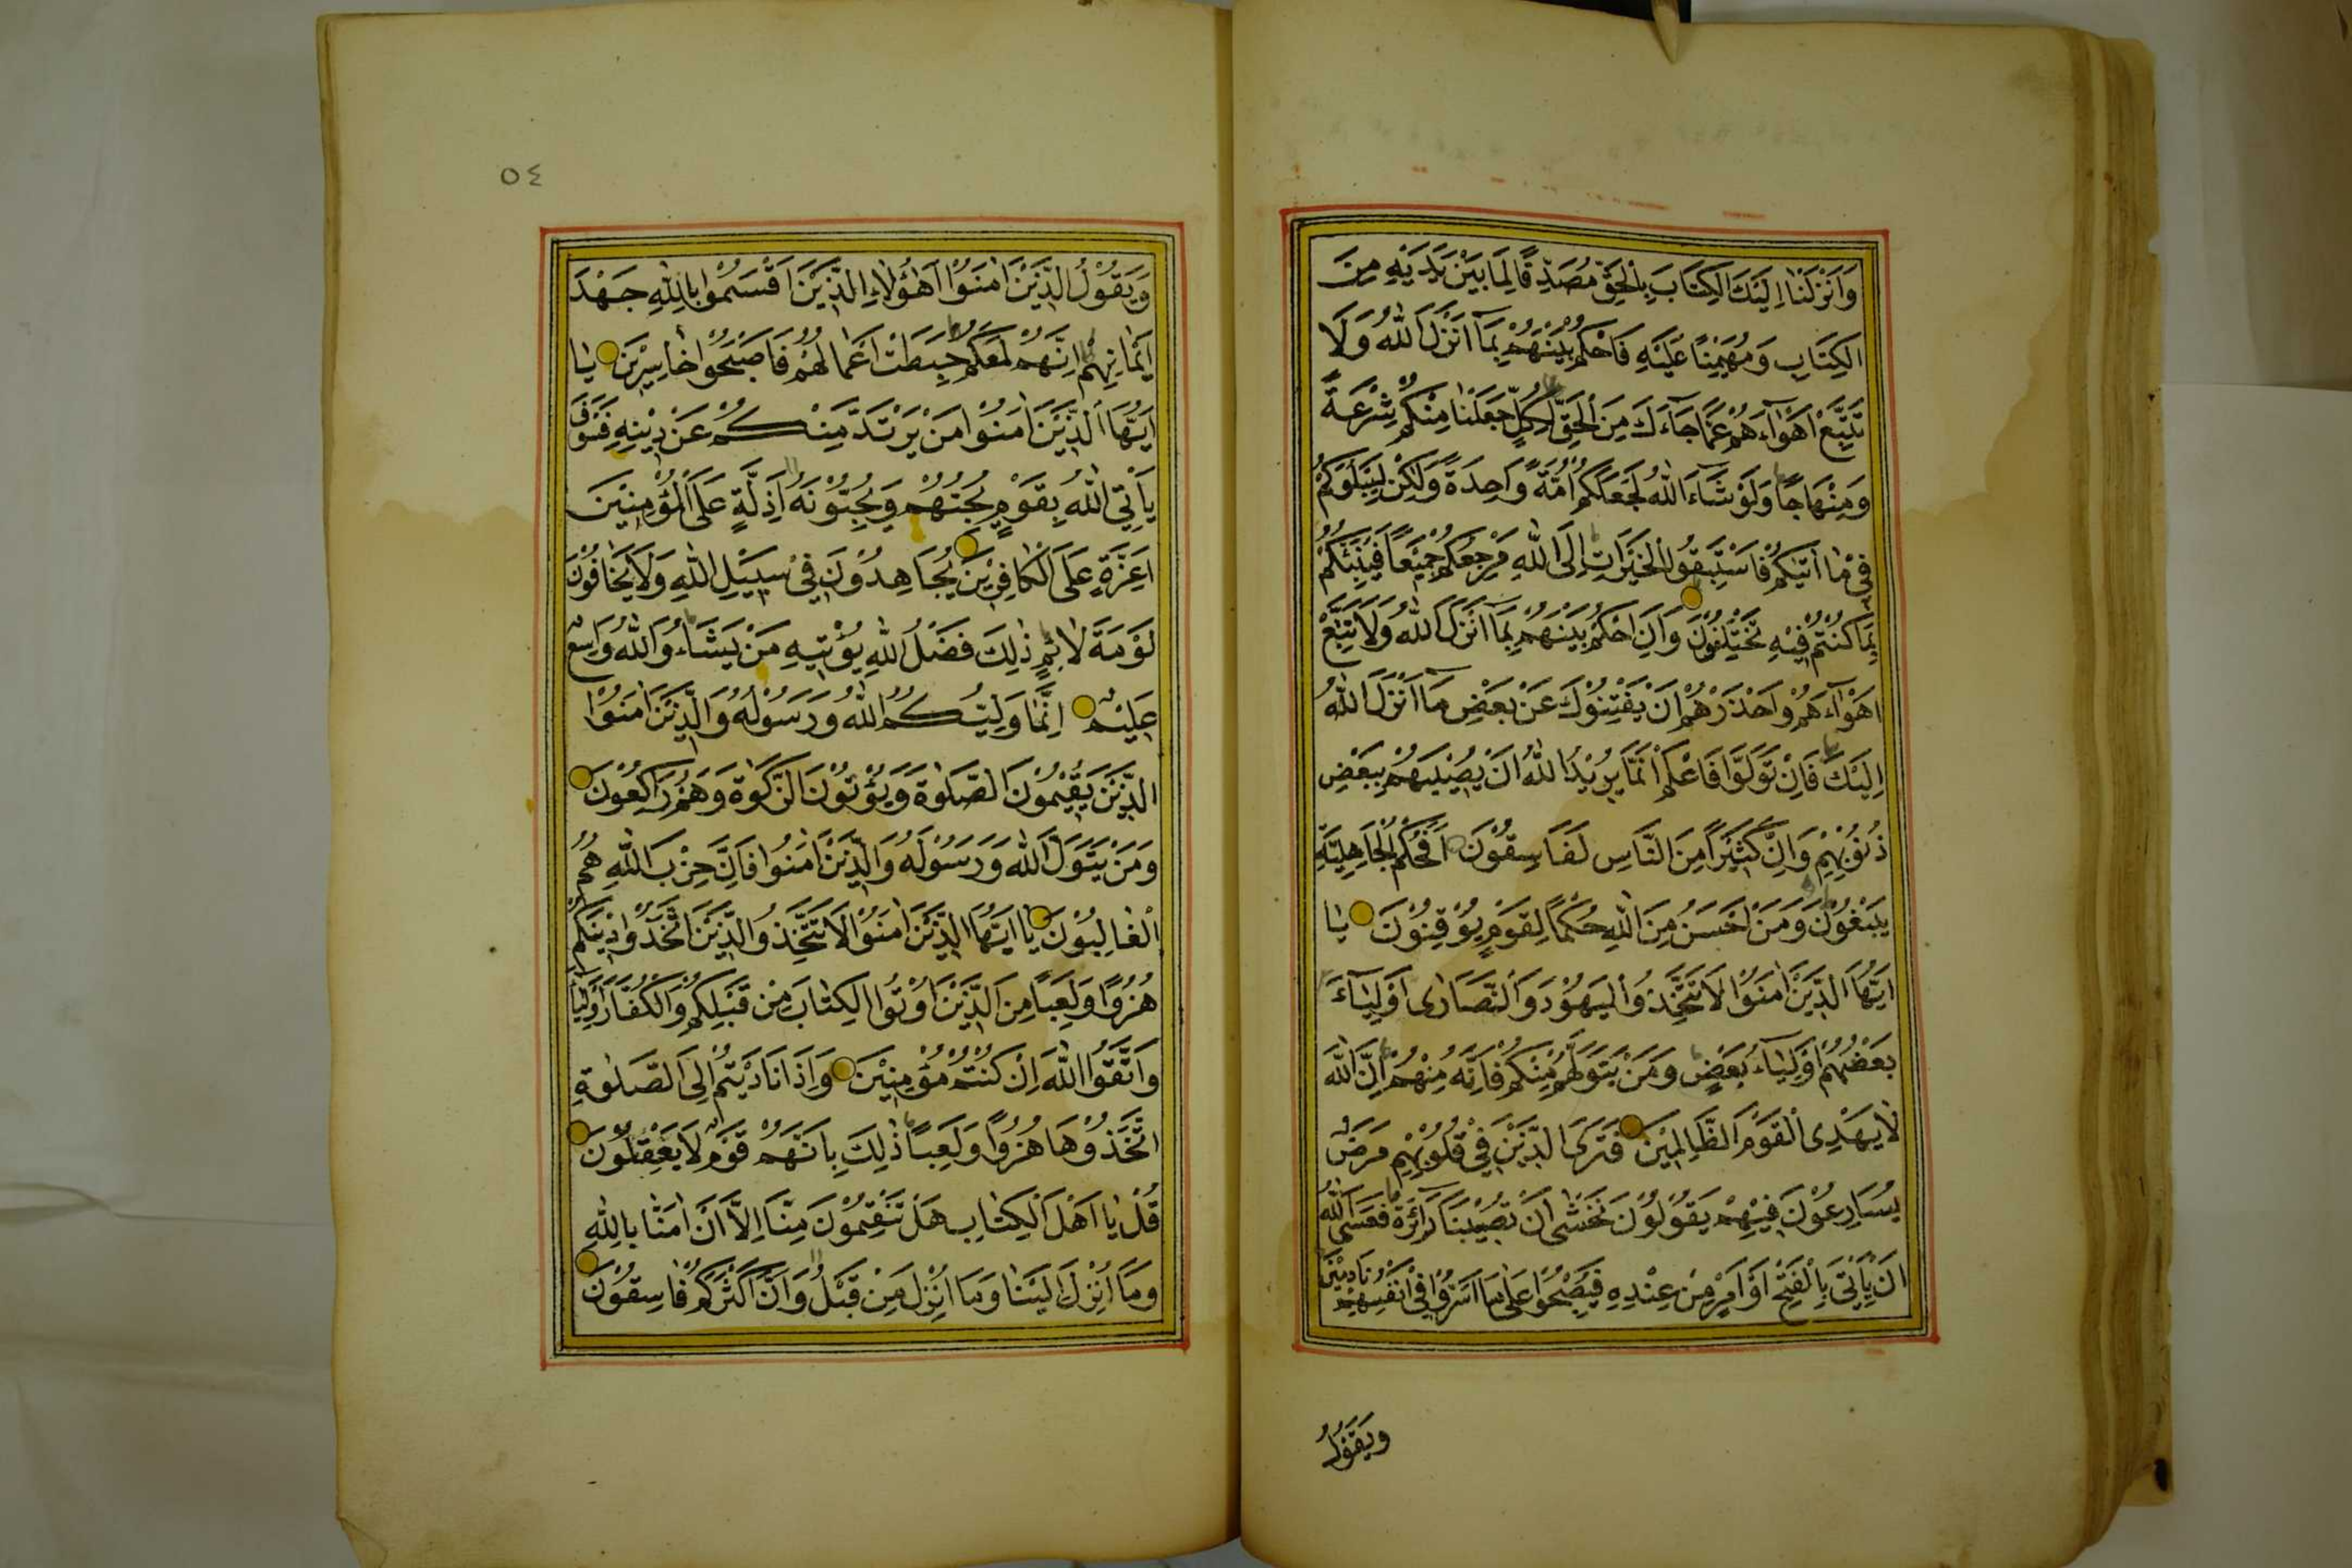 وَاَنْزَلْنَا اِلَيْكَ الْكِتَابَ بِالْحَقِّ مُصَدِّقًا لِمَا بَيْنَ يَدَيْهِ مِنَ
الْكِتَابِ وَمُهَيْمِنًا عَلَيْهِ فَاحْكُمْ بَيْنَهُمْ بِمَا اَنْزَلَ اللّٰهُ وَلَا
تَتَّبِعْ اَهْوَاءَهُمْ عَمَّا جَاءَكَ مِنَ الْحَقِّ لِكُلٍّ جَعَلْنَا مِنْكُمْ شِرْعَةً
وَمِنْهَاجًا وَلَوْ شَاءَ اللّٰهُ لَجَعَلَكُمْ اُمَّةً وَاحِدَةً وَلٰكِنْ لِيَبْلُوَكُمْ
فِى مَا اٰتٰيكُمْ فَاسْتَبِقُوا الْخَيْرَاتِ اِلَى اللّٰهِ مَرْجِعُكُمْ جَمِيْعًا فَيُنَبِّئُكُمْ
بِمَا كُنْتُمْ فِيْهِ تَخْتَلِفُوْنَ وَاَنِ احْكُمْ بَيْنَهُمْ بِمَا اَنْزَلَ اللّٰهُ وَلَا تَتَّبِعْ
اَهْوَاءَهُمْ وَاحْذَرْهُمْ اَنْ يَفْتِنُوْكَ عَنْ بَعْضِ مَا اَنْزَلَ اللّٰهُ
اِلَيْكَ فَاِنْ تَوَلَّوْا فَاعْلَمْ اَنَّمَا يُرِيْدُ اللّٰهُ اَنْ يُصِيْبَهُمْ بِبَعْضِ
ذُنُوْبِهِمْ وَاِنَّ كَثِيْرًا مِنَ النَّاسِ لَفَاسِقُوْنَ اَفَحُكْمَ الْجَاهِلِيَّةِ
يَبْغُوْنَ وَمَنْ اَحْسَنُ مِنَ اللّٰهِ حُكْمًا لِقَوْمٍ يُوْقِنُوْنَ يَا
اَيُّهَا الَّذِيْنَ اٰمَنُوْا لَا تَتَّخِذُوا الْيَهُوْدَ وَالنَّصَارٰى اَوْلِيَاءَ
بَعْضُهُمْ اَوْلِيَاءُ بَعْضٍ وَمَنْ يَتَوَلَّهُمْ مِنْكُمْ فَاِنَّهُ مِنْهُمْ اِنَّ اللّٰهَ
لَا يَهْدِى الْقَوْمَ الظَّالِمِيْنَ فَتَرَى الَّذِيْنَ فِىْ قُلُوْبِهِمْ مَرَضٌ
يُسَارِعُوْنَ فِيْهِمْ يَقُوْلُوْنَ نَخْشٰى اَنْ تُصِيْبَنَا دَائِرَةٌ فَعَسَى اللّٰهُ
اَنْ يَأْتِىَ بِالْفَتْحِ اَوْ اَمْرٍ مِنْ عِنْدِهِ فَيُصْبِحُوْا عَلٰى مَا اَسَرُّوْا فِىْ اَنْفُسِهِمْ نَادِمِيْنَ
وَيَقُوْلُ
٥٤
وَيَقُوْلُ الَّذِيْنَ اٰمَنُوْا اَهٰؤُلَاءِ الَّذِيْنَ اَقْسَمُوْا بِاللّٰهِ جَهْدَ
اَيْمَانِهِمْ اِنَّهُمْ لَمَعَكُمْ حَبِطَتْ اَعْمَالُهُمْ فَاَصْبَحُوْا خَاسِرِيْنَ يَا
اَيُّهَا الَّذِيْنَ اٰمَنُوْا مَنْ يَرْتَدَّ مِنْكُمْ عَنْ دِيْنِهِ فَسَوْفَ
يَأْتِى اللّٰهُ بِقَوْمٍ يُحِبُّهُمْ وَيُحِبُّوْنَهُ اَذِلَّةٍ عَلَى الْمُؤْمِنِيْنَ
اَعِزَّةٍ عَلَى الْكَافِرِيْنَ يُجَاهِدُوْنَ فِىْ سَبِيْلِ اللّٰهِ وَلَا يَخَافُوْنَ
لَوْمَةَ لَائِمٍ ذٰلِكَ فَضْلُ اللّٰهِ يُؤْتِيْهِ مَنْ يَشَاءُ وَاللّٰهُ وَاسِعٌ
عَلِيْمٌ اِنَّمَا وَلِيُّكُمُ اللّٰهُ وَرَسُوْلُهُ وَالَّذِيْنَ اٰمَنُوْا
الَّذِيْنَ يُقِيْمُوْنَ الصَّلٰوةَ وَيُؤْتُوْنَ الزَّكٰوةَ وَهُمْ رَاكِعُوْنَ
وَمَنْ يَتَوَلَّ اللّٰهَ وَرَسُوْلَهُ وَالَّذِيْنَ اٰمَنُوْا فَاِنَّ حِزْبَ اللّٰهِ هُمُ
الْغَالِبُوْنَ يَا اَيُّهَا الَّذِيْنَ اٰمَنُوْا لَا تَتَّخِذُوا الَّذِيْنَ اتَّخَذُوْا دِيْنَكُمْ
هُزُوًا وَلَعِبًا مِنَ الَّذِيْنَ اُوْتُوا الْكِتَابَ مِنْ قَبْلِكُمْ وَالْكُفَّارَ اَوْلِيَاءَ
وَاتَّقُوا اللّٰهَ اِنْ كُنْتُمْ مُؤْمِنِيْنَ وَاِذَا نَادَيْتُمْ اِلَى الصَّلٰوةِ
اتَّخَذُوْهَا هُزُوًا وَلَعِبًا ذٰلِكَ بِاَنَّهُمْ قَوْمٌ لَا يَعْقِلُوْنَ
قُلْ يَا اَهْلَ الْكِتَابِ هَلْ تَنْقِمُوْنَ مِنَّا اِلَّا اَنْ اٰمَنَّا بِاللّٰهِ
وَمَا اُنْزِلَ اِلَيْنَا وَمَا اُنْزِلَ مِنْ قَبْلُ وَاَنَّ اَكْثَرَكُمْ فَاسِقُوْنَ